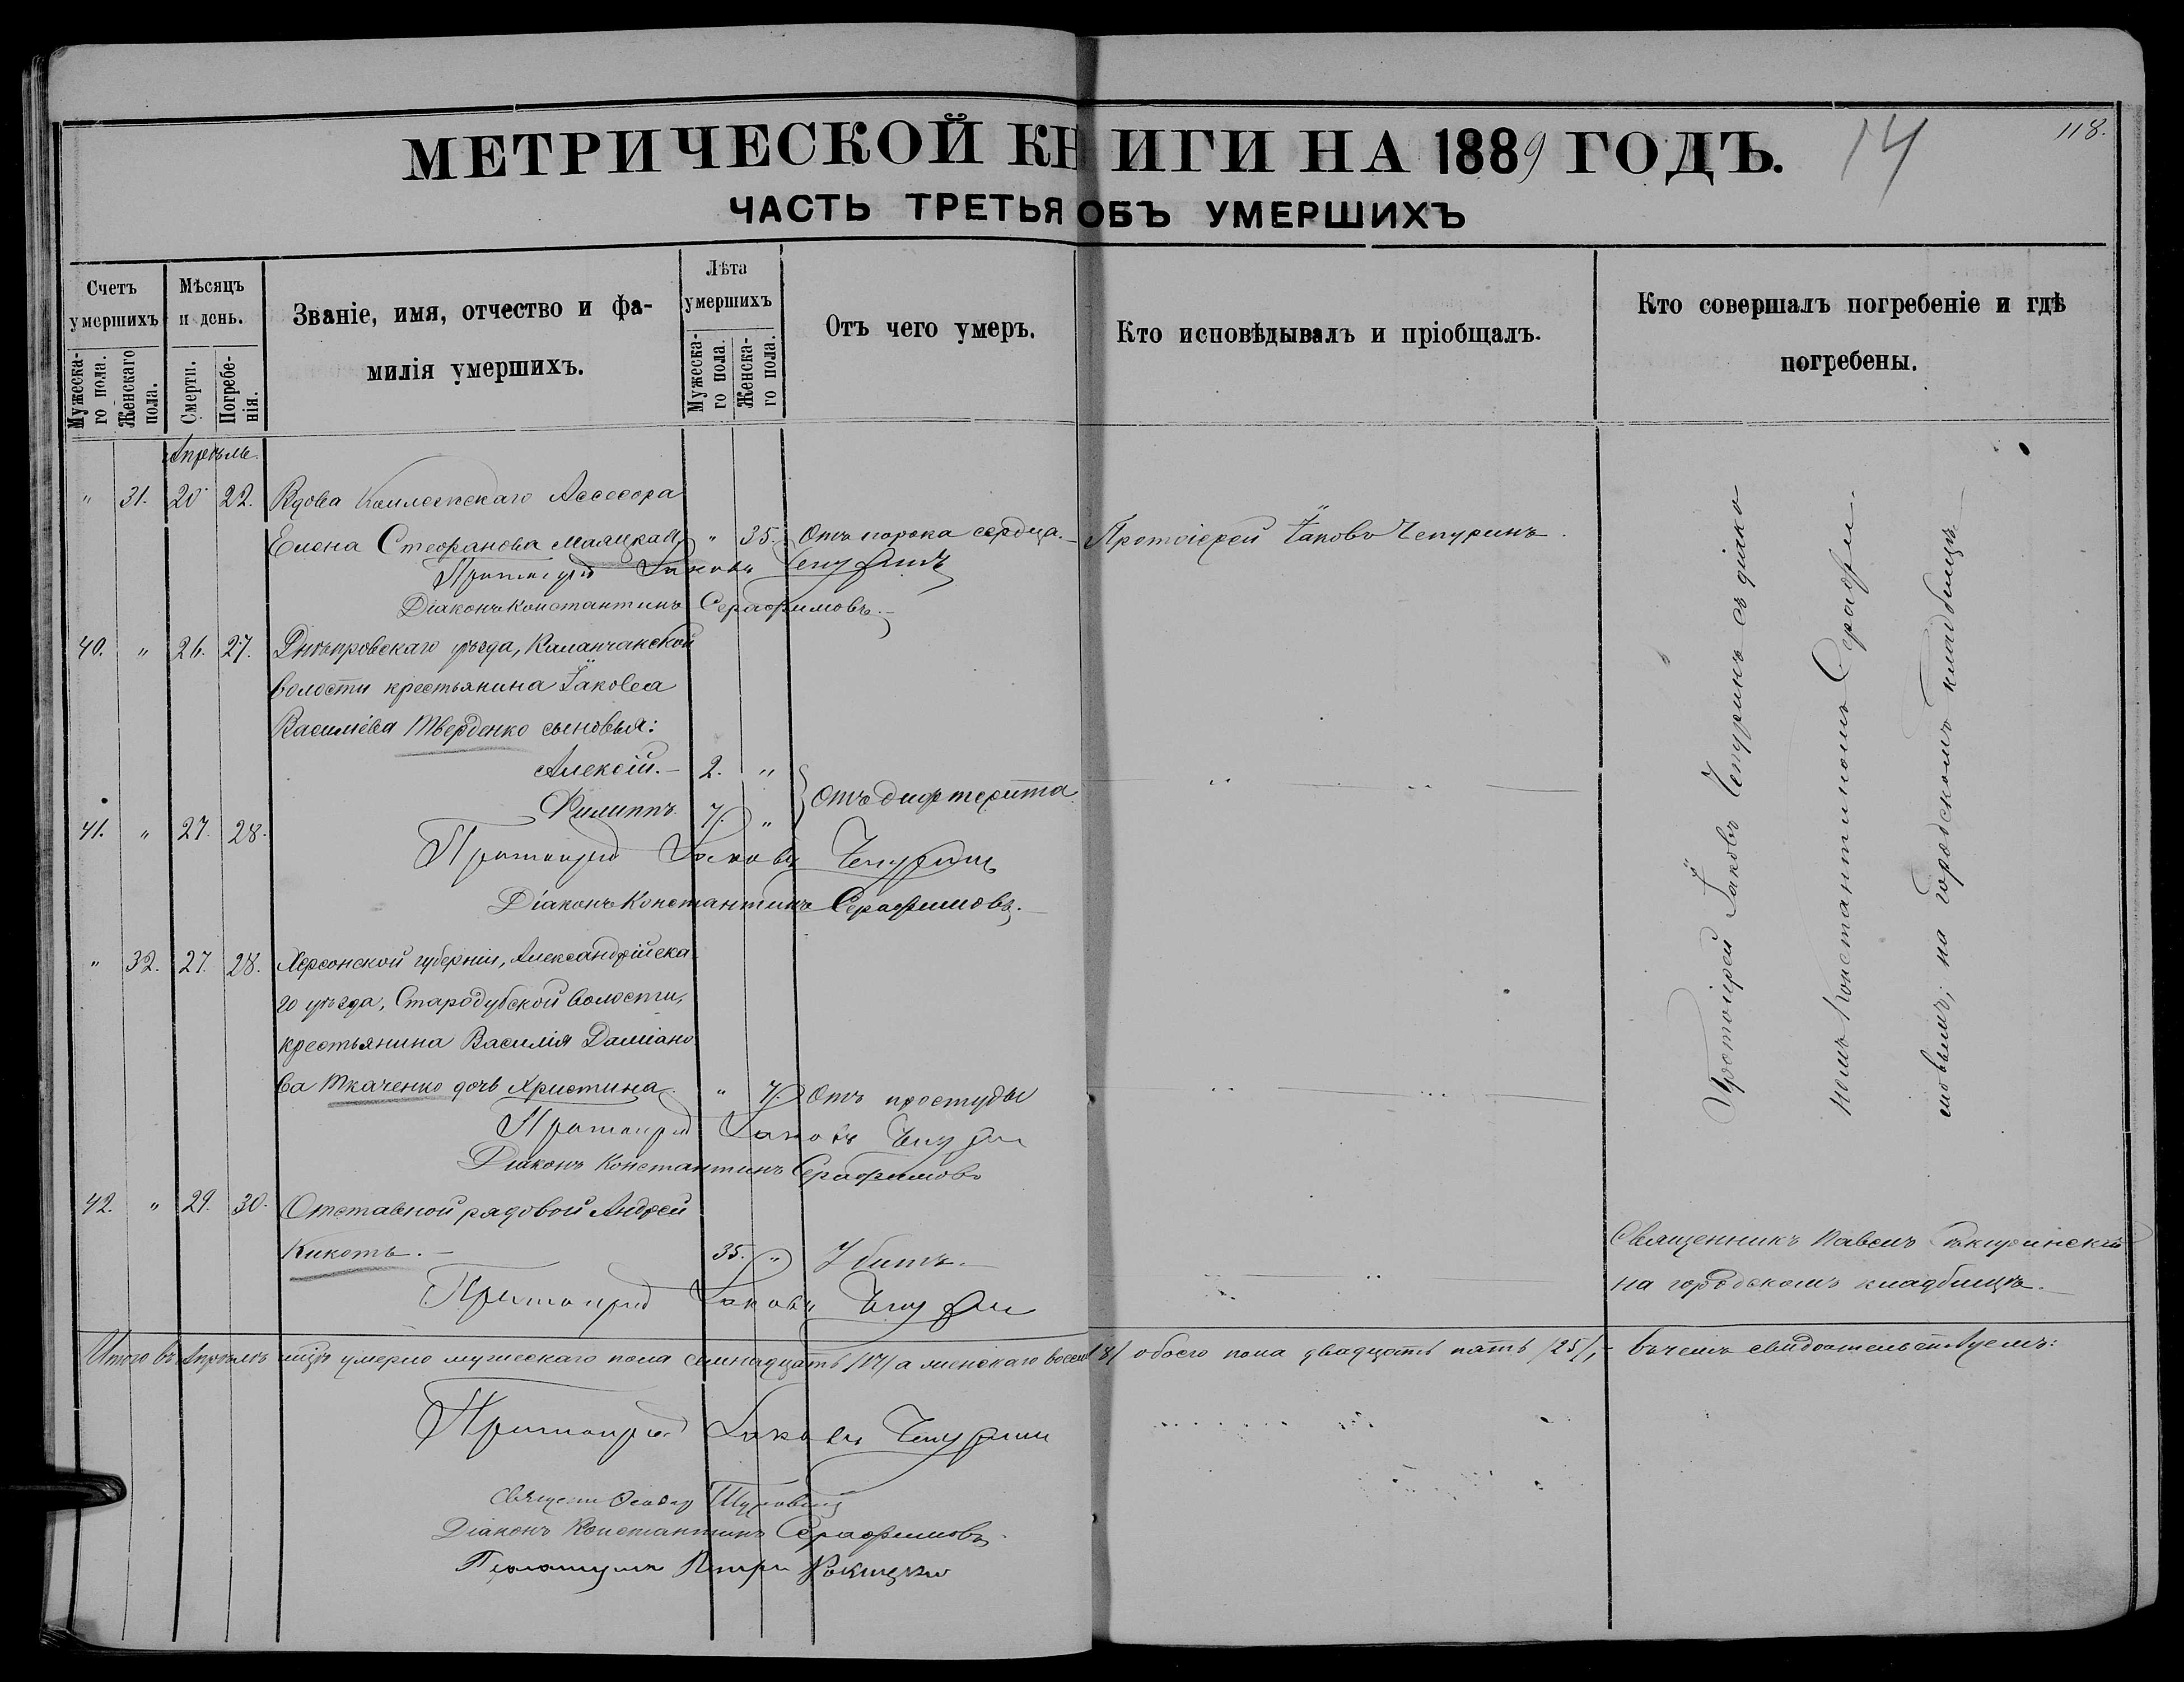 МЕТРИЧЕСКОЙ КНИГИ НА 1889 ГОДЪ.
14
118.
ЧАСТЬ ТРЕТЬЯ ОБЪ УМЕРШИХЪ
Счетъ умершихъ
Мужеска-го пола.
Женскаго пола.
Мѣсяцъ и день.
Смерти.
Погребе-нія.
Званіе, имя, отчество и фа-
милія умершихъ.
Лѣта умершихъ
Мужеска-го пола.
Женска-го пола.
Отъ чего умеръ.
Кто исповѣдывалъ и пріобщалъ.
Кто совершалъ погребеніе и гдѣ
погребены.
Апрѣль.
" 31. 20 22. Вдова Коллежскаго Ассесора
Елена Стефанова Маяцкая " 35. Отъ порока сердца. Протоіерей Іаковъ Чепуринъ.
Протоіерей Іаковъ Чепуринъ
Діаконъ Константинъ Серафимовъ.
40. " 26. 27. Днѣпровскаго уѣзда, Каланчакской
волости крестьянина Іакова
Василіева Тверденко сыновья:
Алексій. 2. "
Отъ дифтерита
41. " 27. 28. Филиппъ. 7. "
Протоіерей Іаковъ Чепуринъ
Діаконъ Константинъ Серафимовъ.
" 32. 27. 28. Херсонской губерніи, Александрійска
го уѣзда, Стародубской волости,
крестьянина Василія Даміано
ва Ткаченко дочь Христина. " 7. Отъ простуды
Протоіерей Іаковъ Чепуринъ
Діаконъ Константинъ Серафимовъ
Протоіерей Іаковъ Чепуринъ съ діако
номъ Константиномъ Серафи-
мовымъ; на городскомъ кладбищѣ.
42. " 29. 30. Отставной рядовой Андрей
Кикоть. 35. " Убитъ.
Священникъ Павелъ
на городскомъ кладбищѣ.
Протоіерей Іаковъ Чепуринъ
Итого въ Апрѣлѣ мцѣ умерло мужескаго пола семнадцать /17/ а женскаго восемь /8/ обоего пола двадцать пять /25/, въ чемъ свидѣтельствуемъ:
Протоіерей Іаковъ Чепуринъ
Діаконъ Константинъ Серафимовъ.